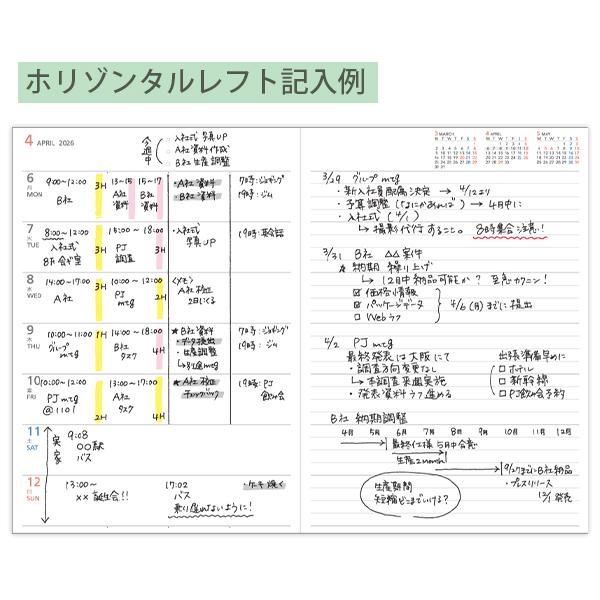 ホリゾンタルレフト記入例
4 APRIL 2026
今週中
入社式 写真UP
A社資料作成
B社生産調整
6 月 MON
9:00~12:00 3H
B社
13~15 15~17
A社 B社
資料 資料
・A社資料
・B社資料
7時:ジョギング
19時:ジム
7 火 TUE
8:00~12:00
入社式
8F会ギ室
15:00~18:00 3H
PJ
調査
・入社式
写真UP
19時:英会話
8 水 WED
14:00~17:00 3H
A社
10:00~12:00 2H
PJ
mtg
<メモ>
A社 校正
2日にくる
9 木 THU
10:00~11:00 1H
グループ
mtg
14:00~18:00 4H
B社
タスク
★B社資料
・データ提出
・生産調整
↳別途mtg
7時:ジョギング
19時:ジム
10 金 FRI
10:00~12:00 2H
PJ mtg
@1101
13:00~17:00 4H
A社
タスク
★A社 校正
チェックバック
19時:PJ
飲み会
11 土 SAT
実家
9:08
○○駅
バス
12 日 SUN
13:00~
×× 誕生会!!
17:02
バス
乗り遅れないように!
・ケーキ焼く
3 MARCH
4 APRIL
5 MAY
3/29 グループ mtg
・新入社員配属決定 → 4/12より
・予算調整 (なにかあれば) → 4月中に
・入社式 (4/1)
↳撮影代行すること。 8時集合注意!!
3/31 B社 △△案件
★納期 繰り上げ
↳12日中納品可能か? 至急カクニン!
☑ 価格情報
☑ パッケージデータ
□ Webラフ
4/6(月)までに提出
4/2 PJ mtg
最終発表は大阪にて
・調査方向変更なし
↳本調査来週実施
・発表資料ラフ進める
出張準備早めに
□ホテル
□新幹線
□PJ飲み会予約
B社 納期調整
4月 5月 6月 7月 8月 9月 10月 11月 12月
最終仕様 5月中合意
生産2month
9/27までにB社納品
・プレスリリース
12/1 発売
生産期間
短縮どこまでいける?